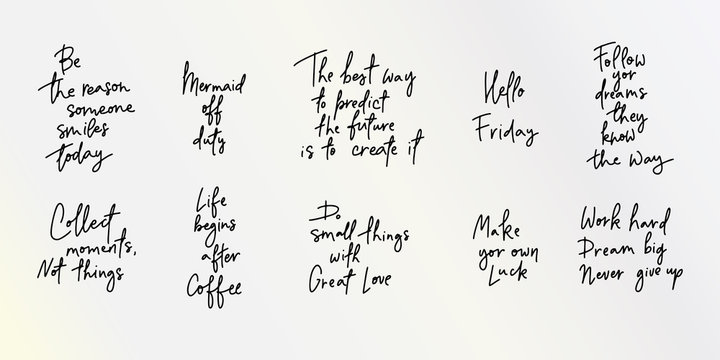 Be
the reason
someone
smiles
today
Mermaid
off
duty
The best way
to predict
the future
is to create it
Hello
Friday
Follow
yor
dreams
they
know
the way
Collect
moments,
Not things
Life
begins
after
Coffee
Do
small things
with
Great Love
Make
yor own
Luck
Work hard
Dream big
Never give up